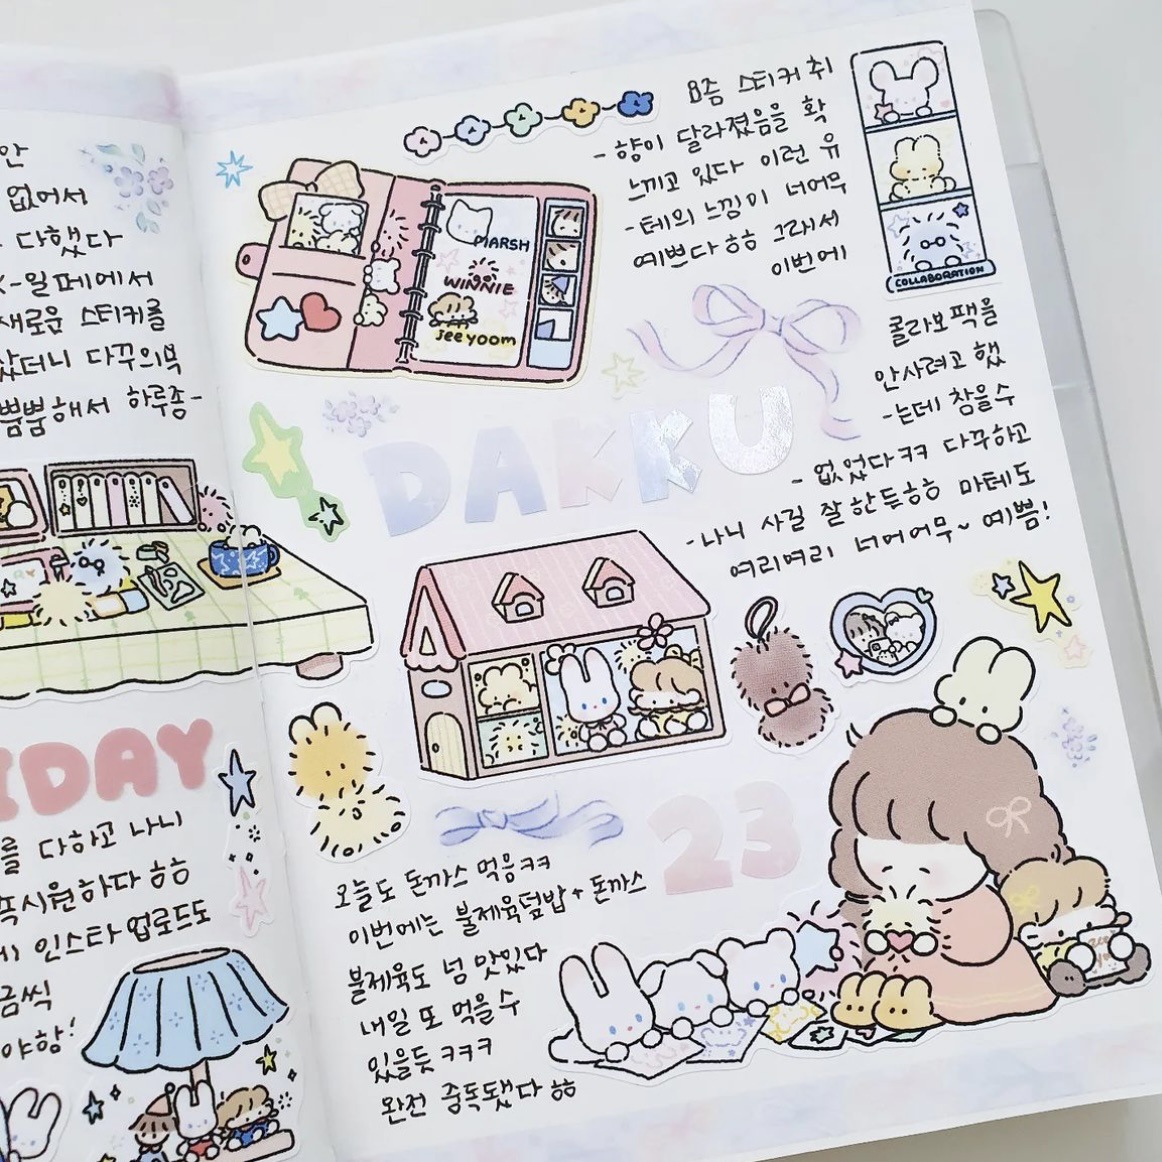 안
없어서
다했다
K-일페에서
새로운 스티커를
샀더니 다꾸의욕
뿜뿜해서 하루종-
IDAY
를 다하고 나니
속시원하다 ㅎㅎ
인스타 업로드도
금씩
야항!
요즘 스티커 취
-향이 달라졌음을 확
느끼고 있다 이런 유
-테의 느낌이 너어무
예쁘다 ㅎㅎ 그래서
이번에
MARSH
WINNIE
Jeeyoom
COLLABORATION
콜라보팩을
안사려고 했
-는데 참을수
- 없었다ㅋㅋ 다꾸하고
-나니 사길 잘한듯ㅎㅎ 마테도
여리여리 너어어무~ 예쁨!
DAKKU
23
오늘도 돈까스 먹음ㅋㅋ
이번에는 불제육덮밥+돈까스
불제육도 넘 맛있다
내일 또 먹을수
있을듯 ㅋㅋㅋ
완전 중독됐다 ㅎㅎ